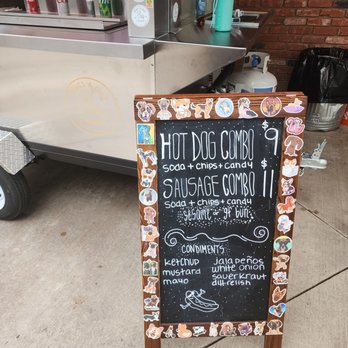 HOT DOG COMBO $9
soda + chips + candy
SAUSAGE COMBO $11
soda + chips + candy
sesame or gf buns
CONDIMENTS
ketchup jalapeños
mustard white onion
mayo sauerkraut
dill relish